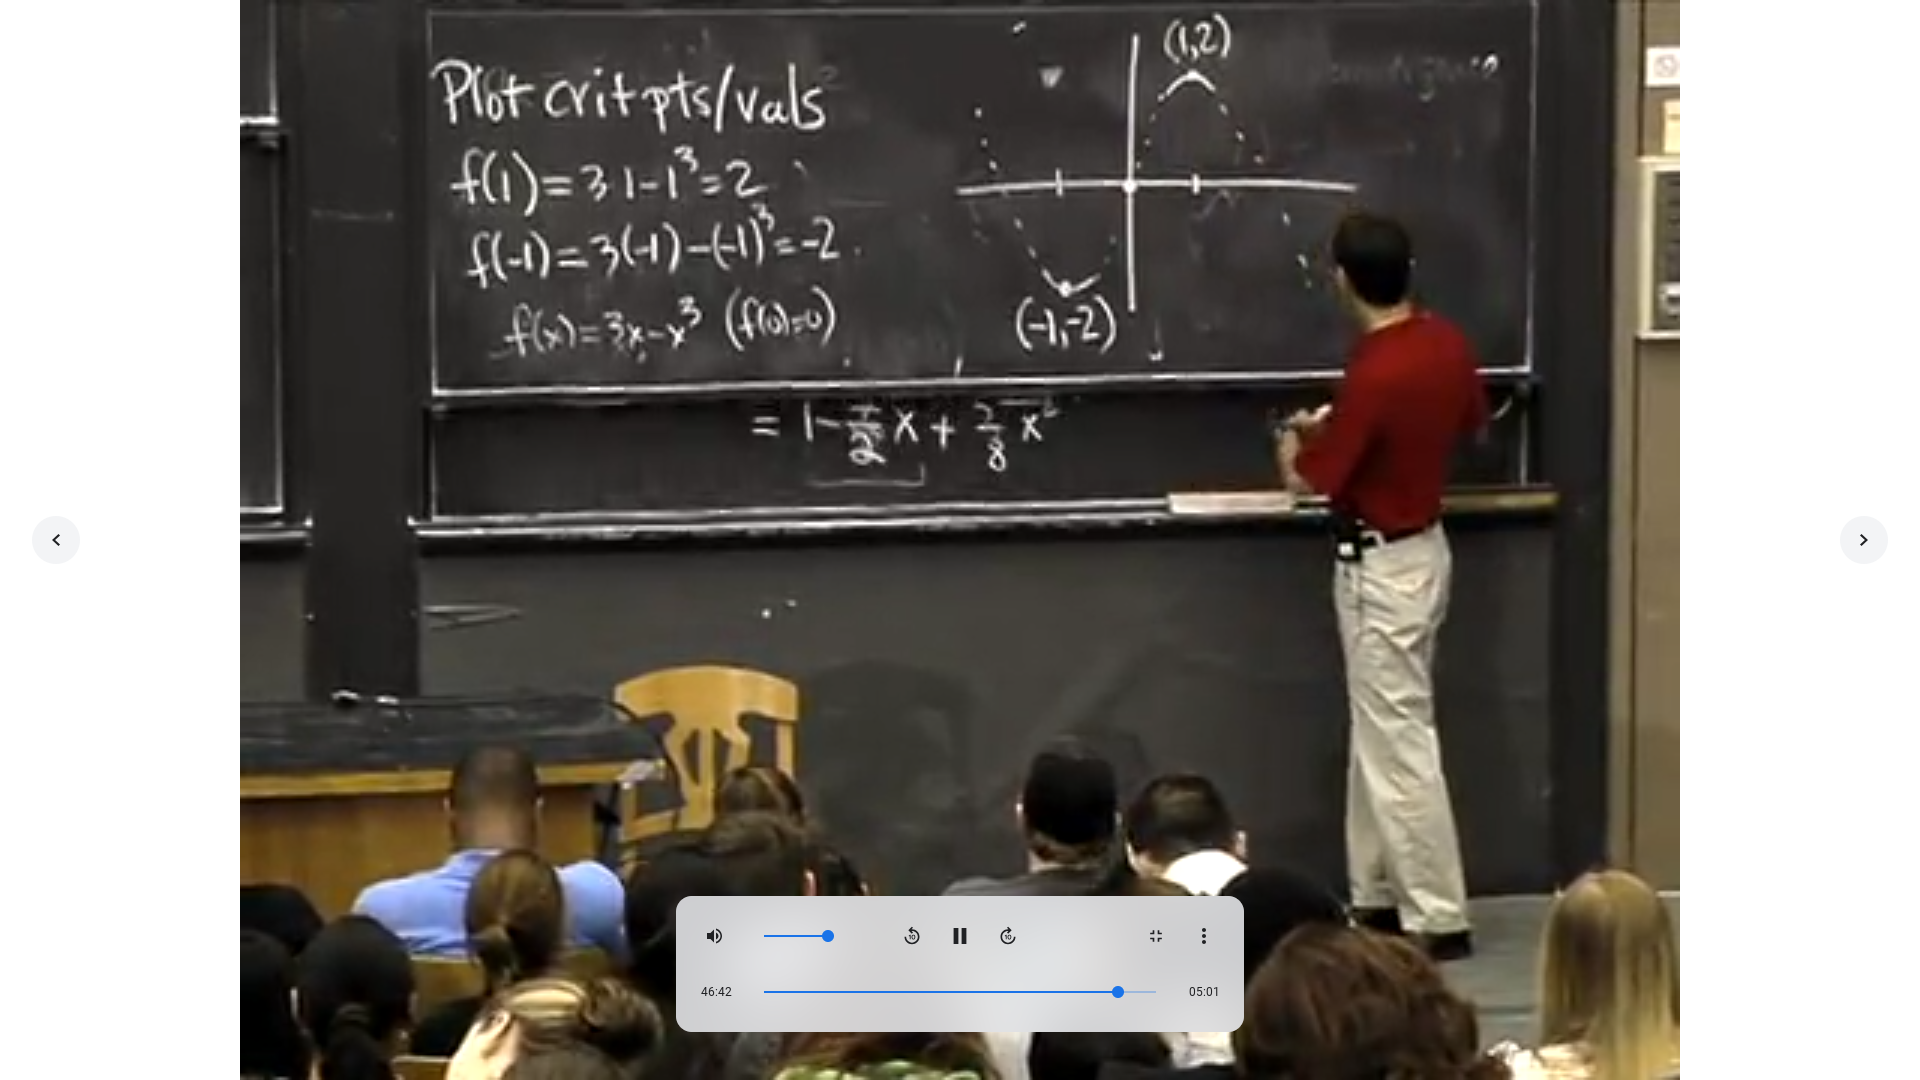 Plot crit pts/vals
f(1) = 3·1 - 1³ = 2
f(-1) = 3(-1) - (-1)³ = -2
f(x) = 3x - x³ (f(0)=0)
(1,2)
(-1,-2)
46:42
05:01